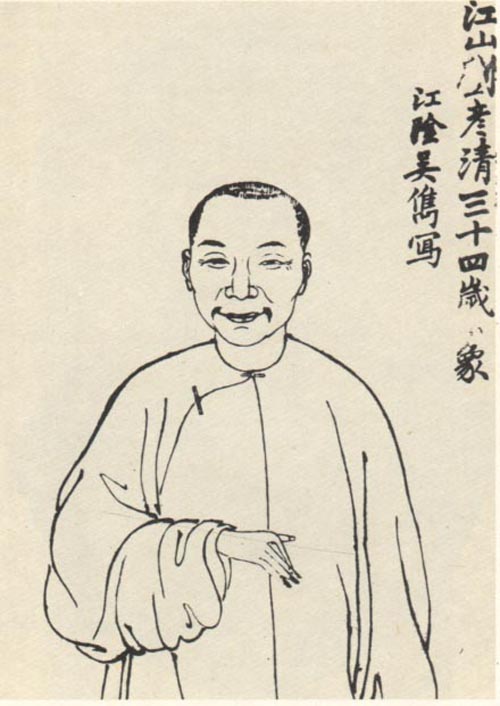 江山劉彥清三十四歲小象
江陰吳儁寫